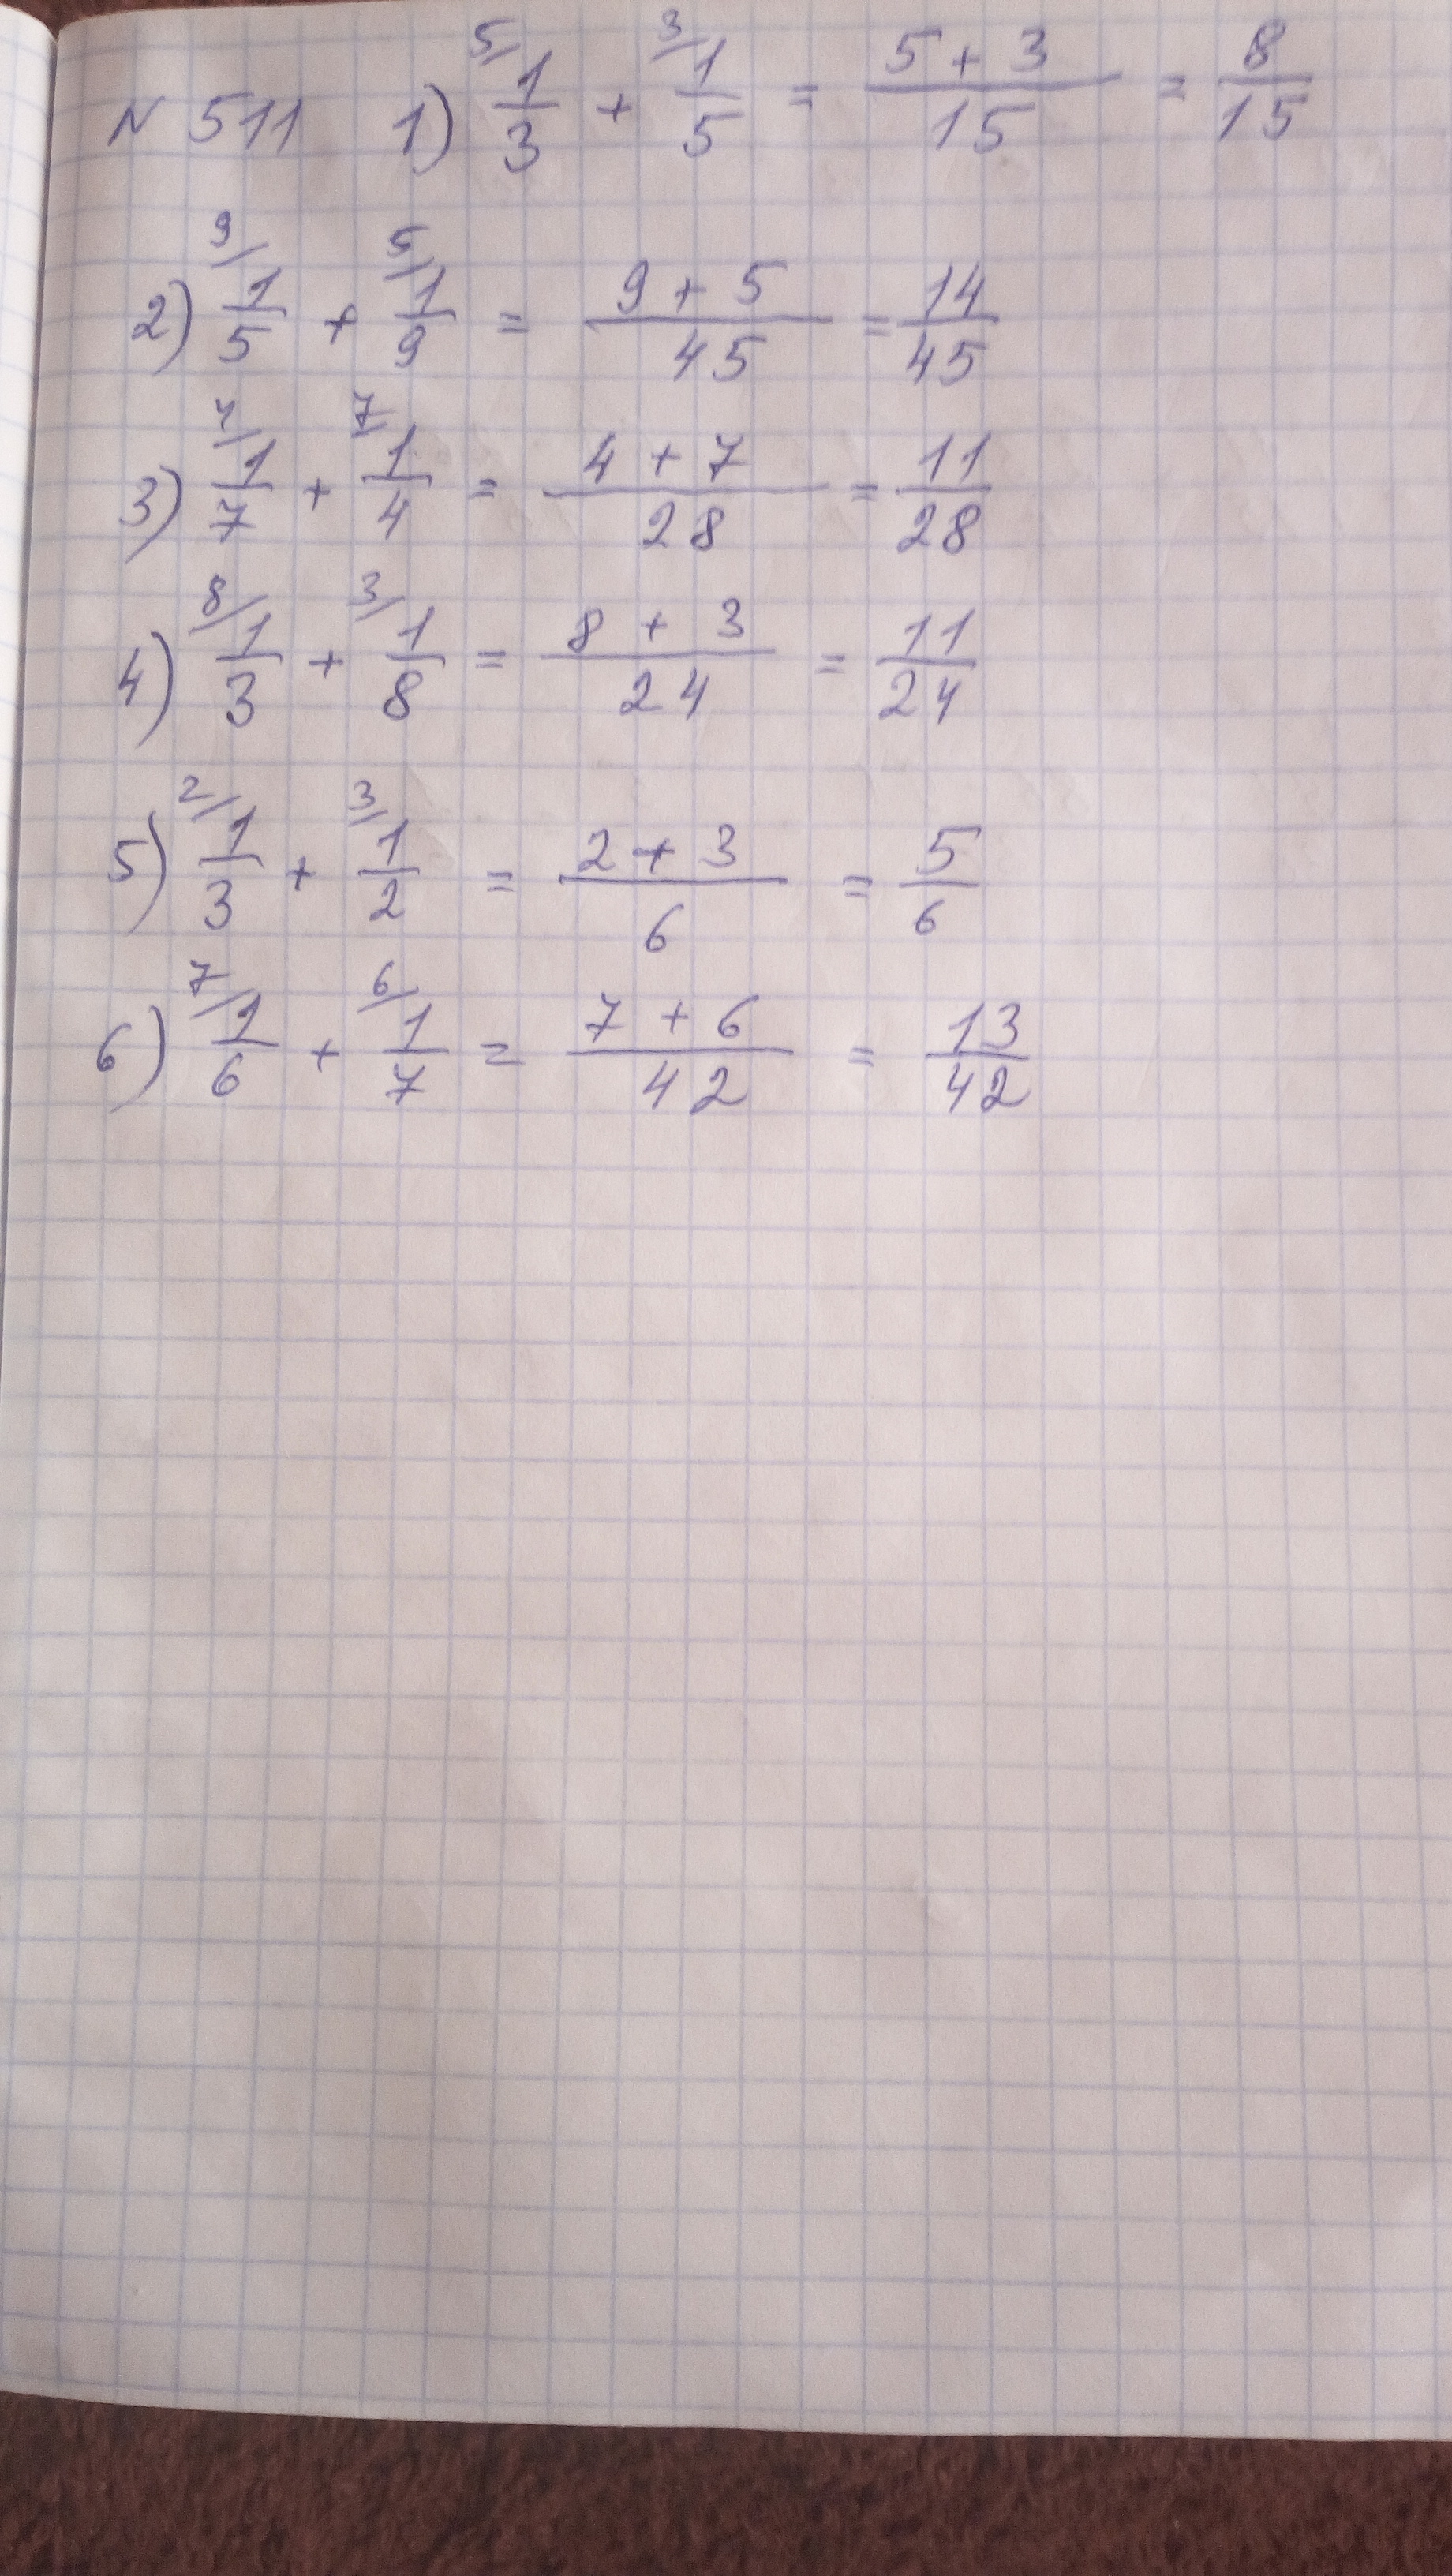 N 511 1) ⁵/ 1/3 + ³/ 1/5 = (5 + 3)/15 = 8/15
2) ⁹/ 1/5 + ⁵/ 1/9 = (9 + 5)/45 = 14/45
3) ⁴/ 1/7 + ⁷/ 1/4 = (4 + 7)/28 = 11/28
4) ⁸/ 1/3 + ³/ 1/8 = (8 + 3)/24 = 11/24
5) ²/ 1/3 + ³/ 1/2 = (2 + 3)/6 = 5/6
6) ⁷/ 1/6 + ⁶/ 1/7 = (7 + 6)/42 = 13/42